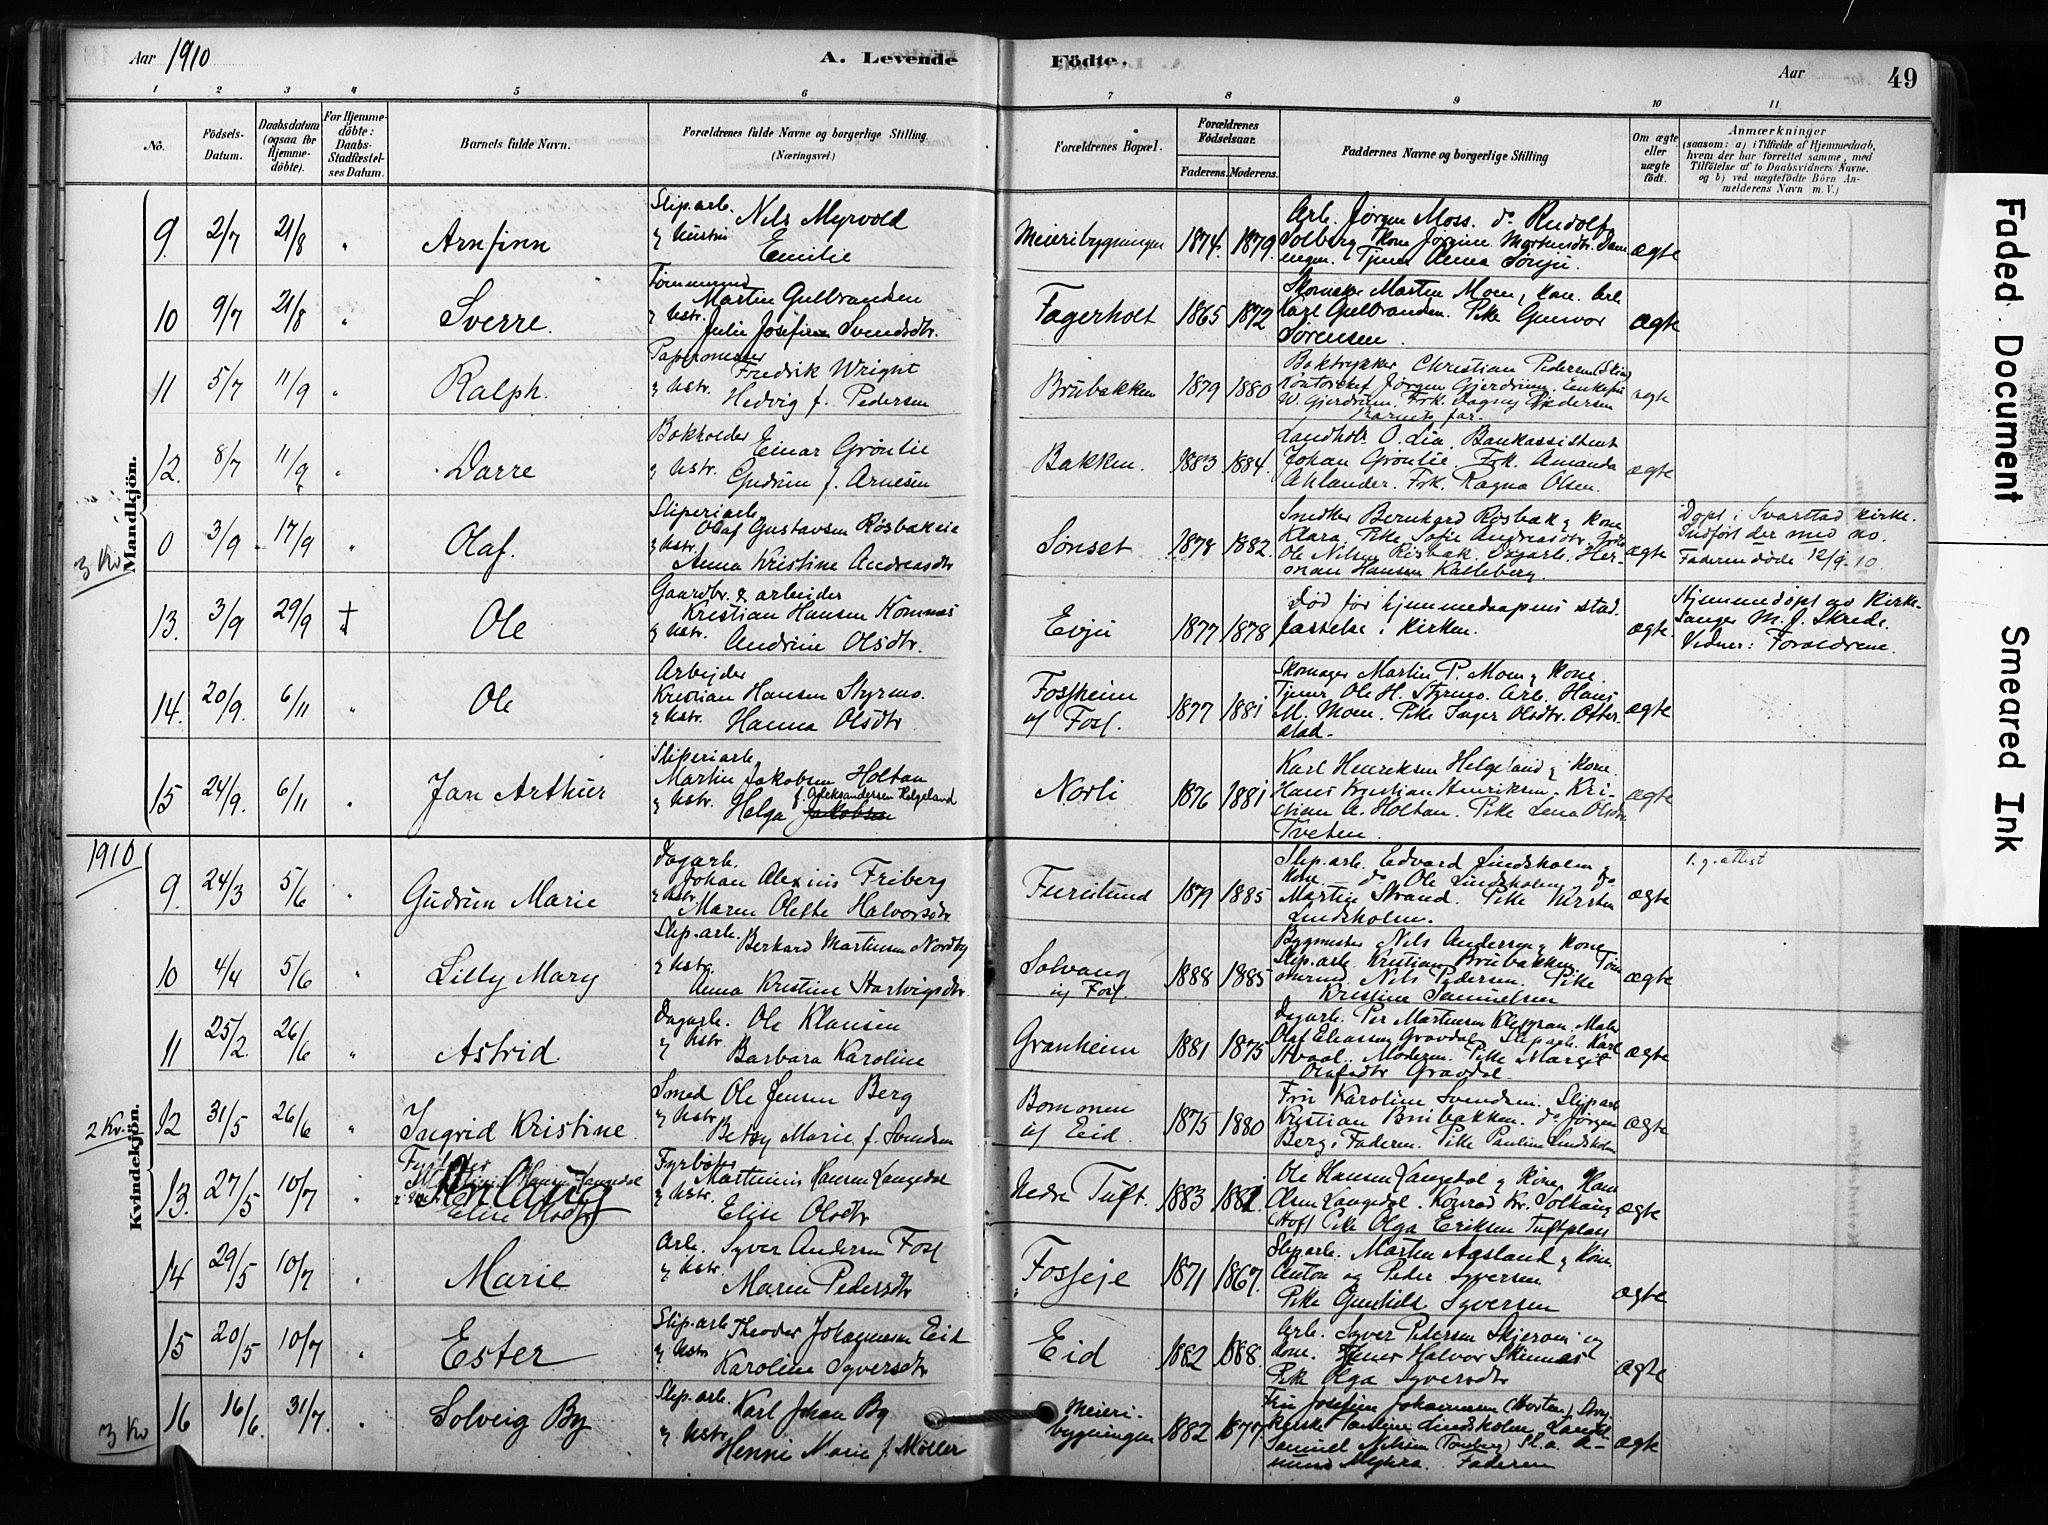 Aar 1910
A. Levende
Födte.
Aar
49
1 2 3 4 5 6 7 8 9 10 11
No.
Födsels-
Datum.
Daabsdatum
(ogsaa for
Hjemme-
döbte).
For Hjemme-
döbte:
Daabs-
Stadfæstel-
ses Datum.
Barnets fulde Navn.
Forældrenes fulde Navne og borgerlige Stilling
(Næringsvei.)
Forældrenes Bopæl.
Forældrenes
Födselsaar.
Faderens. Moderens.
Faddernes Navne og borgerlige Stilling
Om ægte
eller
uægte
födt.
Anmærkninger
(saasom: a) i Tilfælde af Hjemmedaab,
hvem der har forrettet samme, med
Tilföielse af to Daabsvidners Navne.
og b) ved uægtefödte Börn An-
melderens Navn m. V.)
Faded Document
Smeared Ink
Mandkjön.
3 Kv
9. 2/7 21/8 " Arnfinn
Slip.arb. Nils Myrvold
& hustru Emilie
Meieribygningen 1874. 1879.
Arb. Jørgen Moss. do Rudolf
Solberg, kone Jørgine Martinsdtr.
Tjener Anna
ægte
10 9/7 21/8 " Sverre.
Tømmermd
Martin Gulbrandsen
& hstr. Julie Josefine Svendsdtr.
Fagerholt 1865 1872
Martin Moen & kone. Arb.
Karl Gulbrandsen. Pike Gunvor
Sørensen.
ægte
11 5/7 11/9 " Ralph.
Papermester
Fredrik Wright
& hstr. Hedvig f. Pedersen
Brubakken 1879 1880
Boktrykker Christian Pedersen
Kontorchef Jørgen Gjerdrum, Enkefru
W. Gjerdrum. Frk. Dagny Pedersen
Barnets far.
ægte
12. 8/7 11/9 " Darre
Bokholder Einar Grønlie
& hstr. Gudrun f. Arnesen
Bakken. 1883 1884.
Landholr. O. Lia, Bankassistent
Johan Grønlie, Frk. Amanda
Ahlander. Frk. Ragna Olsen.
ægte
0 3/9 17/9 " Olaf.
Sliperiarb.
Olaf Gustavsen Røsbakeie
& hstr. Anna Kristine Andreasdtr
Sønset 1878 1882.
Snedker Bernhard Røsbak & kone
Klara. Pike Sofie Andreasdtr.
Ole Nilsen Røsbak, Dagarb. Her-
man Hansen Kalleberg.
ægte
Døpt i Svarstad kirke.
Indført der med no.
Faderen døde 12/9.10.
13. 3/9 29/9 † Ole
Gaardbr. & arbeider
Kristian Hansen Komnæs
& hstr. Andrine Olsdtr.
Evju 1877 1878
Død før hjemmedaapens stad-
fæstelse i kirken.
ægte.
Hjemmedøpt av Kirke-
sanger M. J. Skrede.
Vidner: Forældrene.
14. 20/9. 6/11 " Ole
Arbejder
Kristian Hansen Styrmo.
& hstr. Hanna Olsdtr
Fossheim
af Foss. 1877 1881
Skomager Martin P. Moen & kone.
Tjener Ole H. Styrmo. Arb. Hans
M. Moen. Pike Inger Olsdtr. Ofter-
stad.
ægte
15 24/9. 6/11 " Jan Arthur
Sliperiarb.
Martin Jakobsen Holtan
& hstr. Helga f. Aleksandersen Helgeland
Norli 1876 1881
Karl Henriksen Helgeland & kone.
Hans Kristian Henriksen. Kri-
stian A. Holtan. Pike Lena Olsdtr
Tveten.
ægte
1910
Kvindekjön.
9. 24/3 5/6 " Gudrun Marie
Dagarb.
Johan Alexius Friberg
& hstr. Maren Oleste Halvorsdtr
Furulund 1879 1885
Slip.arb. Edvard Lindsholm &
kone. do Ole Lindsholm do
Martin Strand. Pike Kirsten
Lindsholm.
ægte
1. g. attest
10 4/4 5/6 " Lilly Mary
Slip.arb. Berhard Martinsen Nordby
& hstr. Anna Kristine Hartvigsdtr.
Solvang
af Foss. 1888 1885
Bygmester Nils Andersen & kone
Slip.arb. Kristian Brubakken, Tøm-
mermd. Nils Pedersen. Pike
Kristine Samuelsen
ægte
11 25/2. 26/6 " Astrid
Dagarb. Ole Klausen
& hstr. Barbara Karoline
Granheim 1881 1875
Dagarb. Per Martinsen Kleppan. Maler
Olaf Eliassen Gravdal. Slip.arb. Karl
Hvaal. Moderen. Pike Margit
Olafsdtr Gravdal
ægte
2 Kv.
12 31/5 26/6 " Ingrid Kristine.
Smed Ole Jensen Berg
& hstr Betsy Marie f. Svendsen
Bommen
af Eid. 1875 1880
Fru Karoline Svendsen. Slip.arb
Kristian Brubakken. do Jørgen
Berg, Faderen. Pike Pauline Lindsholm
ægte
13. 27/5 10/7 " Anlaug
Elise Olsdtr
Fyrbøter
Mathinius Hansen Langedal
& hstr. Elise Olsdtr
Nedre Tuft. 1883 1881.
Ole Hansen Langedal & kone, Hans
Olsen Langedal. Konrad Kr. Solhaug
(Hof) Pike Olga Eriksen Tuftplass
ægte
14 29/5 10/7 " Marie
Arb. Syver Andersen Foss
& hstr. Maren Pedersdtr
Fosseje 1871 1867.
Slip.arb. Martin Aasland & kone
Anton og Peder Syversen
Pike Gunhild Syversen
ægte
15 20/5 10/7 " Ester
Slip.arb Theodor Johannesen Eid
& hstr Karoline Syversdtr
Eid 1882 1888.
Arb. Syver Pedersen Skjeroni og
kone. Tjener Halvor Skinnæs
Pike Olga Syversdtr
ægte
3 Kv
16 16/6. 31/7. " Solveig By
Slip.arb. Karl Johan By
& hstr. Henni Marie f. Møller
Meieri-
bygningen 1882 1877.
Fru Josefine Johannesen (Horten)
Pauline Lindsholm
Samuel Nilsen (Tønsberg)
Myhra. Faderen
ægte